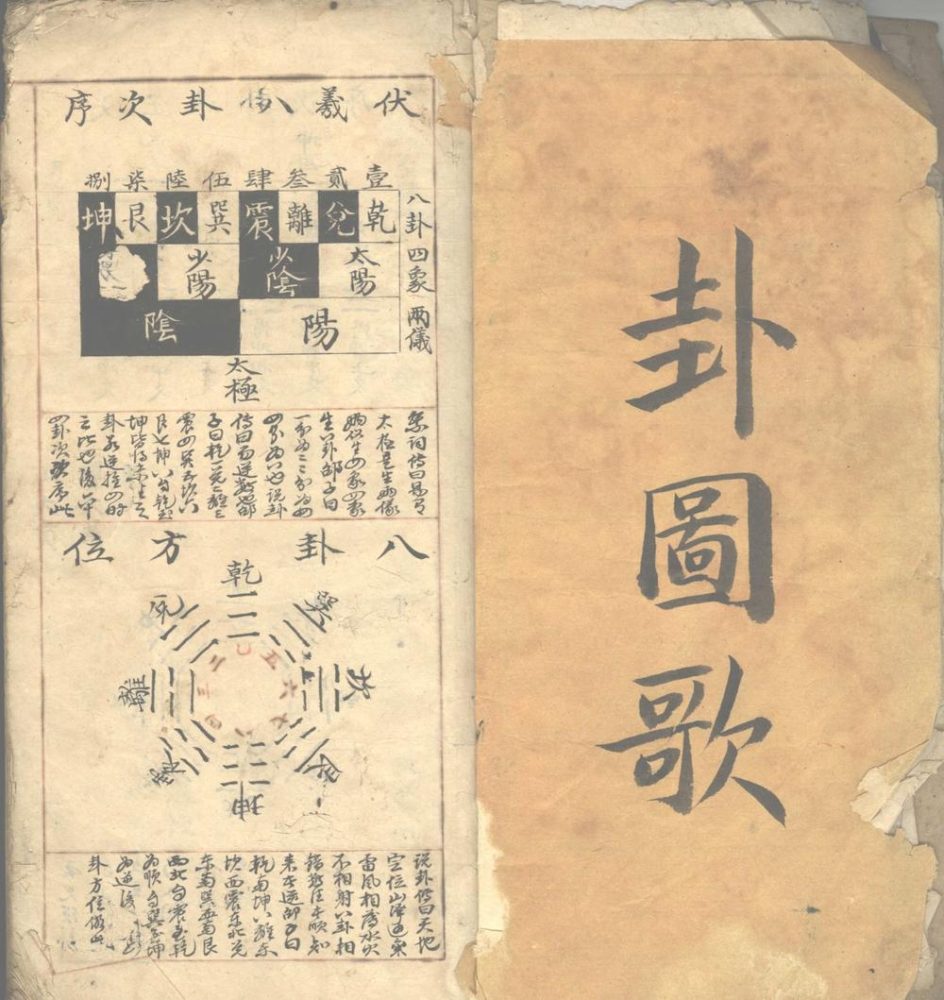 卦圖歌
伏羲八卦次序
壹貳叁肆伍陸柒捌
乾兌離震巽坎艮坤
八卦
太陽
少陰
少陽
四象
陽
陰
兩儀
太極
系詞傳曰易有
太極是生兩儀
兩儀生四象四象
生八卦邵子曰
一分為二二分為四
四分為八也說卦
傳曰易逆數也邵
子曰乾一兌二離三
震四巽五坎六
艮七坤八自乾至
坤皆得未生之
卦若逆推四時
之比也後六十
四卦次序此
八卦方位
乾
兌
離
震
巽
坎
艮
坤
二
三
四
五
六
七
說卦傳曰天地
定位山澤通氣
雷風相薄水火
不相射八卦相
錯數往者順知
來者逆邵子曰
乾南坤北離東
坎西震東北兌
東南巽西南艮
西北自震至乾
為順自巽至坤
為逆後
卦方位倣此